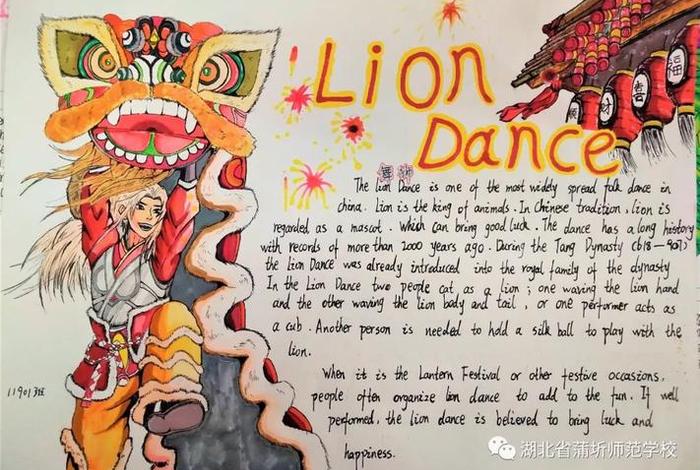 Lion
Dance
舞狮
The Lion Dance is one of the most widely spread folk dance in
china. Lion is the king of animals. In Chinese tradition, lion is
regarded as a mascot. Which can bring good luck. The dance has a long history
with records of more than 2000 years ago. During the Tang Dynasty (618—907)
the Lion Dance was already introduced into the royal family of the dynasty
In the Lion Dance two people cat as a lion; one waving the lion hand
and the other waving the lion body and tail, or one performer acts as
a cub. Another person is needed to hold a silk ball to play with the
lion.
When it is the Lantern Festival or other festive occasions,
people often organize lion dance to add to the fun. If well
performed, the lion dance is believed to bring luck and
happiness.
119013班
财
吉
福
湖北省蒲圻师范学校